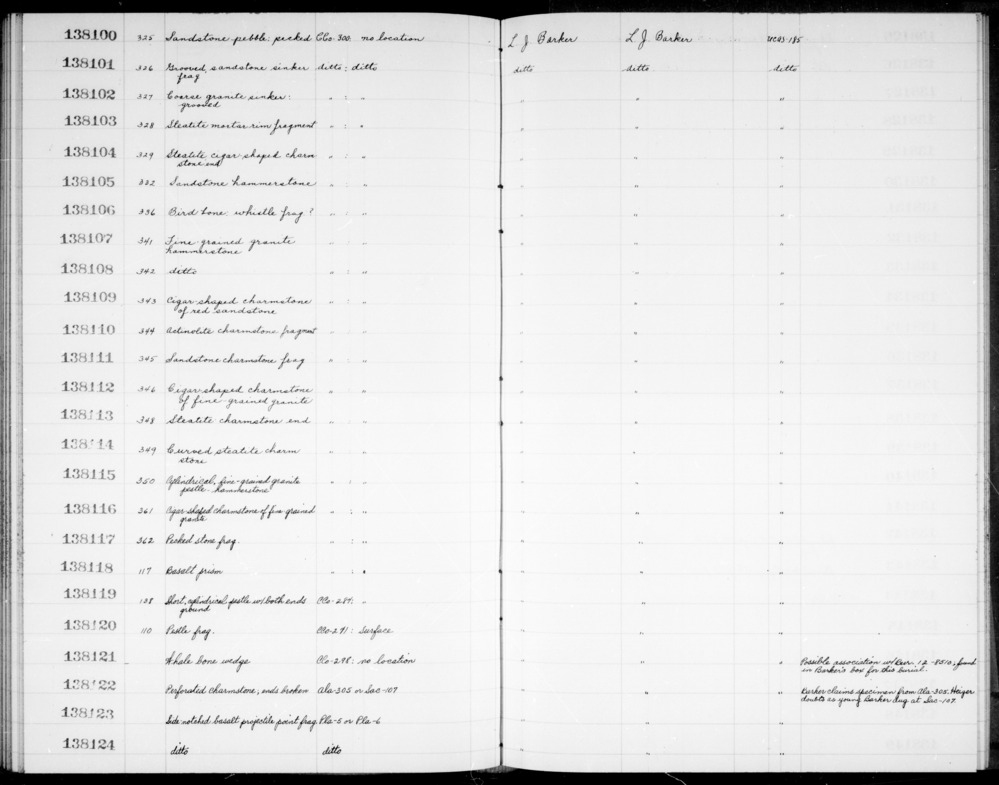 138100 325 Sandstone pebble: pecked CCo-300: no location L J Barker L J Barker UCAS-185
138101 326 Grooved, sandstone sinker ditto : ditto ditto ditto ditto
frag
138102 327 Coarse granite sinker: " : " " " "
grooved
138103 328 Steatite mortar rim fragment " : " " " "
138104 329 Steatite cigar shaped charm " : " " " "
stone end
138105 332 Sandstone hammerstone " : " " " "
138106 336 Bird bone: whistle frag? " : " " " "
138107 341 Fine grained granite " : " " " "
hammerstone
138108 342 ditto " : " " " "
138109 343 Cigar-shaped charmstone " : " " " "
of red sandstone
138110 344 Actinolite charmstone fragment " : " " " "
138111 345 Sandstone charmstone frag " : " " " "
138112 346 Cigar-shaped charmstone " : " " " "
of fine-grained granite
138113 348 Steatite charmstone end " : " " " "
138114 349 Curved steatite charm " : " " " "
stone
138115 350 Cylindrical, fine-grained granite " : " " " "
pestle-hammerstone
138116 361 Cigar-shaped charmstone of fine grained " : " " " "
granite
138117 362 Pecked stone frag. " : " " " "
138118 117 Basalt prism " : " " " "
138119 138 Short, cylindrical pestle w/ both ends CCo-284: " " " "
ground
138120 110 Pestle frag. CCo-291: Surface " " "
138121 Whale bone wedge CCo-298: no location " " " Possible association w/ Bur. 12-8510; found
in Barker's box for this burial.
138122 Perforated charmstone; ends broken Ala-305 or Sac-107 " " " Barker claims specimen from Ala-305. Heizer
doubts as young Barker dug at Sac-107.
138123 Side-notched basalt projectile point frag. Pla-5 or Pla-6 " " "
138124 ditto ditto " " "